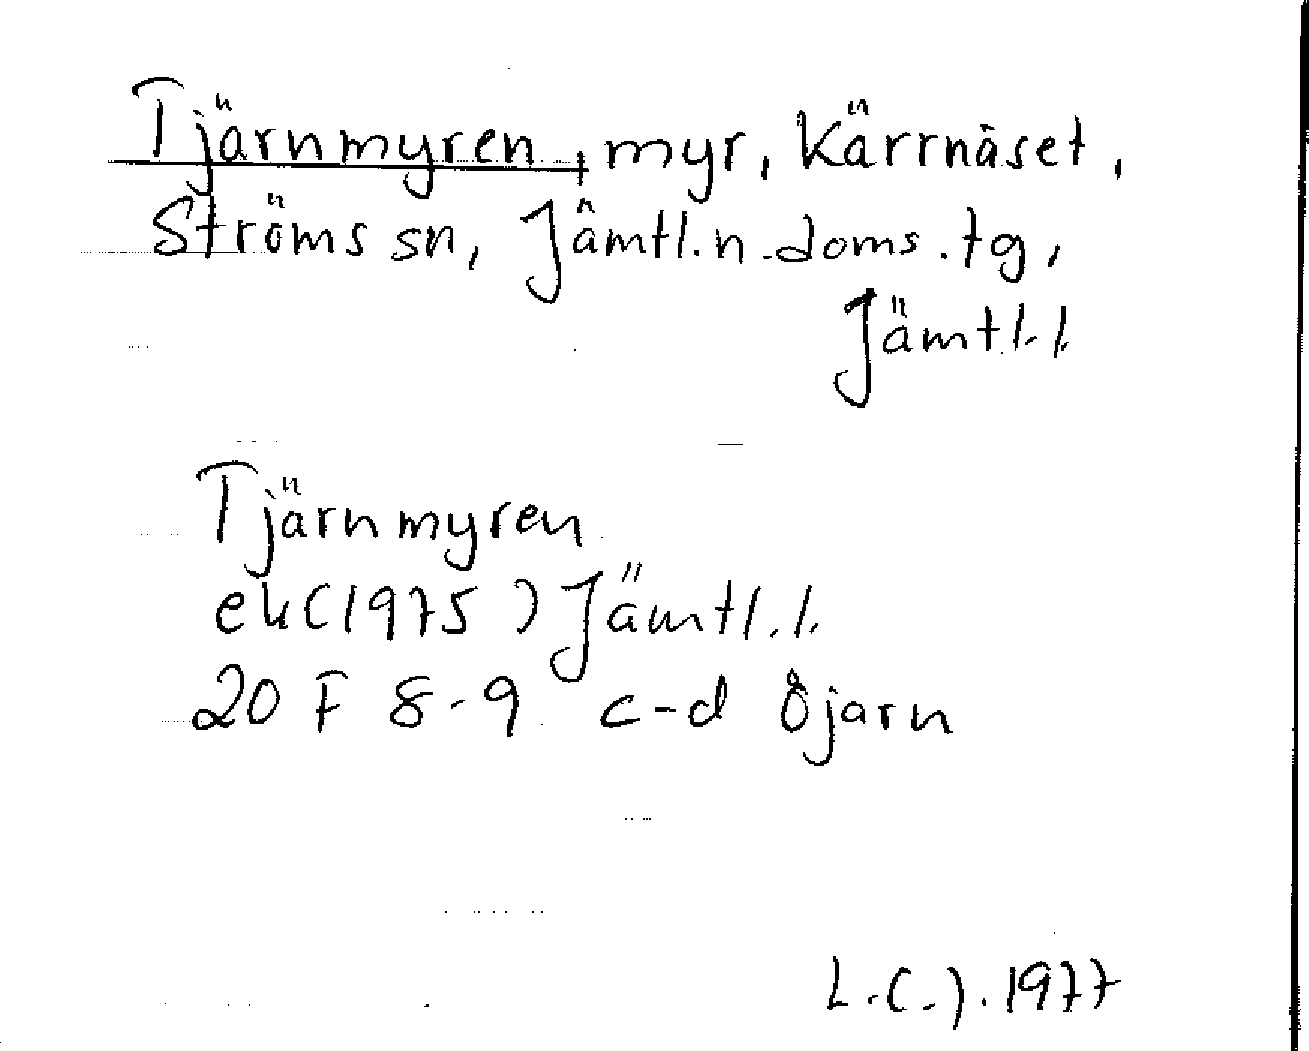 Tjärnmyren, myr, Kärrnäset,
Ströms sn, Jämtl.n.doms.tg,
Jämtl.l.
Tjärnmyren
ek(1975) Jämtl.l.
20 F 8-9 c-d Öjarn
L.C.J. 1977